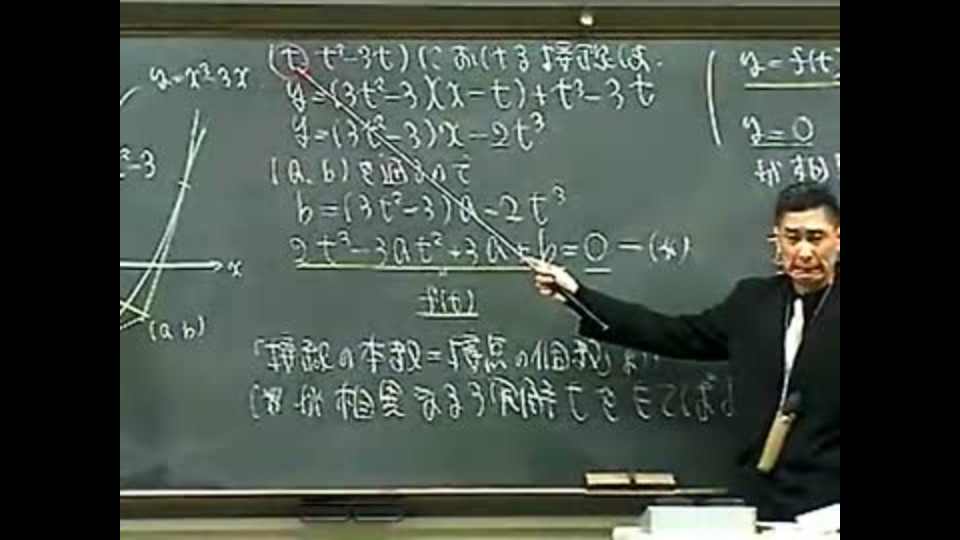 y=x³-3x
(t, t³-3t)における接線は.
y=(3t²-3)(x-t)+t³-3t
y=(3t²-3)x-2t³
(a, b)を通るので
b=(3t²-3)a-2t³
2t³-3at²+3a+b=0-(*)
f(t)
「接線の本数=接点の個数」
(*)が相異なる3実解tをもてばよ
²-3
x
(a, b)
y=f(t)
y=0
が